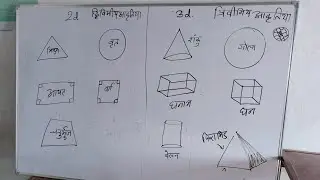 2d द्विविमीय आकृतिया
3d. त्रिविमीय आकृतिया
त्रिभुज
वृत्त
शंकु
गोला
आयत
वर्ग
घनाभ
घन
चतुर्भुज
बेलन
पिरामिड